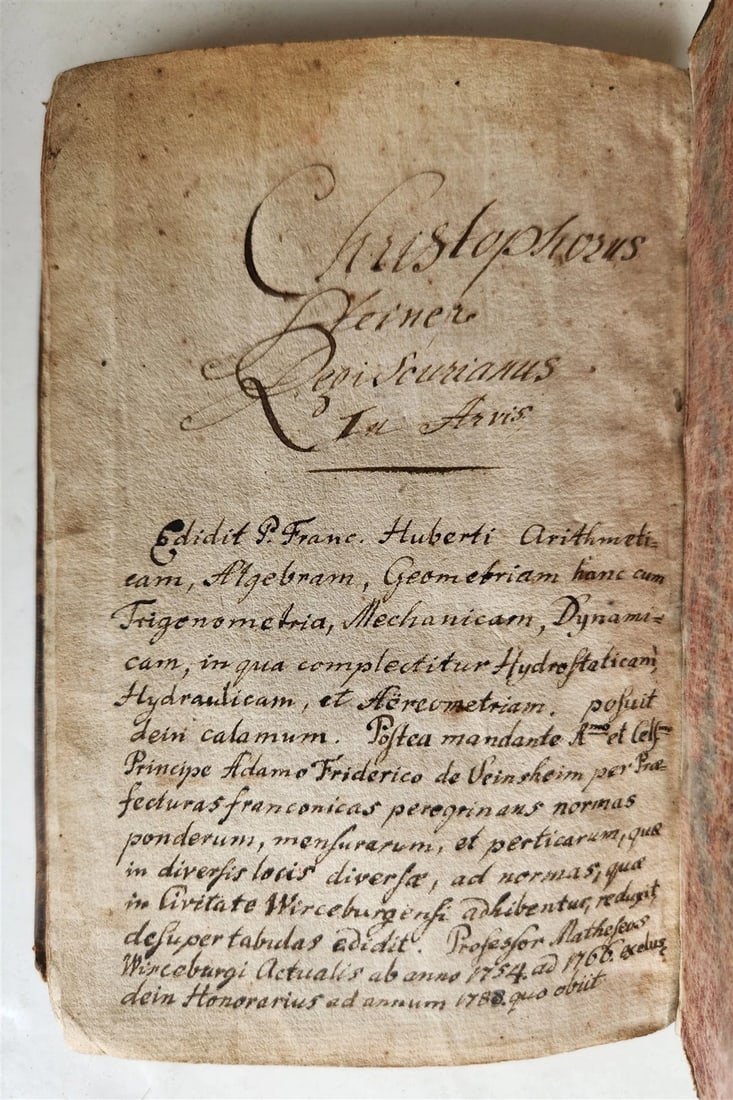 Christophorus
Steiner
Regiscurianus
In Arvis
Edidit P. Franc. Huberti Arithmeti=
cam, Algebram, Geometriam hanc cum
Trigonometria, Mechanicam, Dynami=
cam, in qua complectitur Hydrostaticam,
Hydraulicam, et Aëreometriam. posuit
dein calamum. Postea mandante Rmo et Celsmo
Principe Adamo Friderico de Seinsheim per Præ=
fecturas franconicas peregrinans normas
ponderum, mensurarum, et perticarum, quæ
in diversis locis diversæ, ad normas, quæ
in Civitate Wirceburgensi adhibentur, redegit,
desuper tabulas edidit. Professor Matheseos
Wirceburgi Actualis ab anno 1754. ad 1766.
dein Honorarius ad annum quo obiit